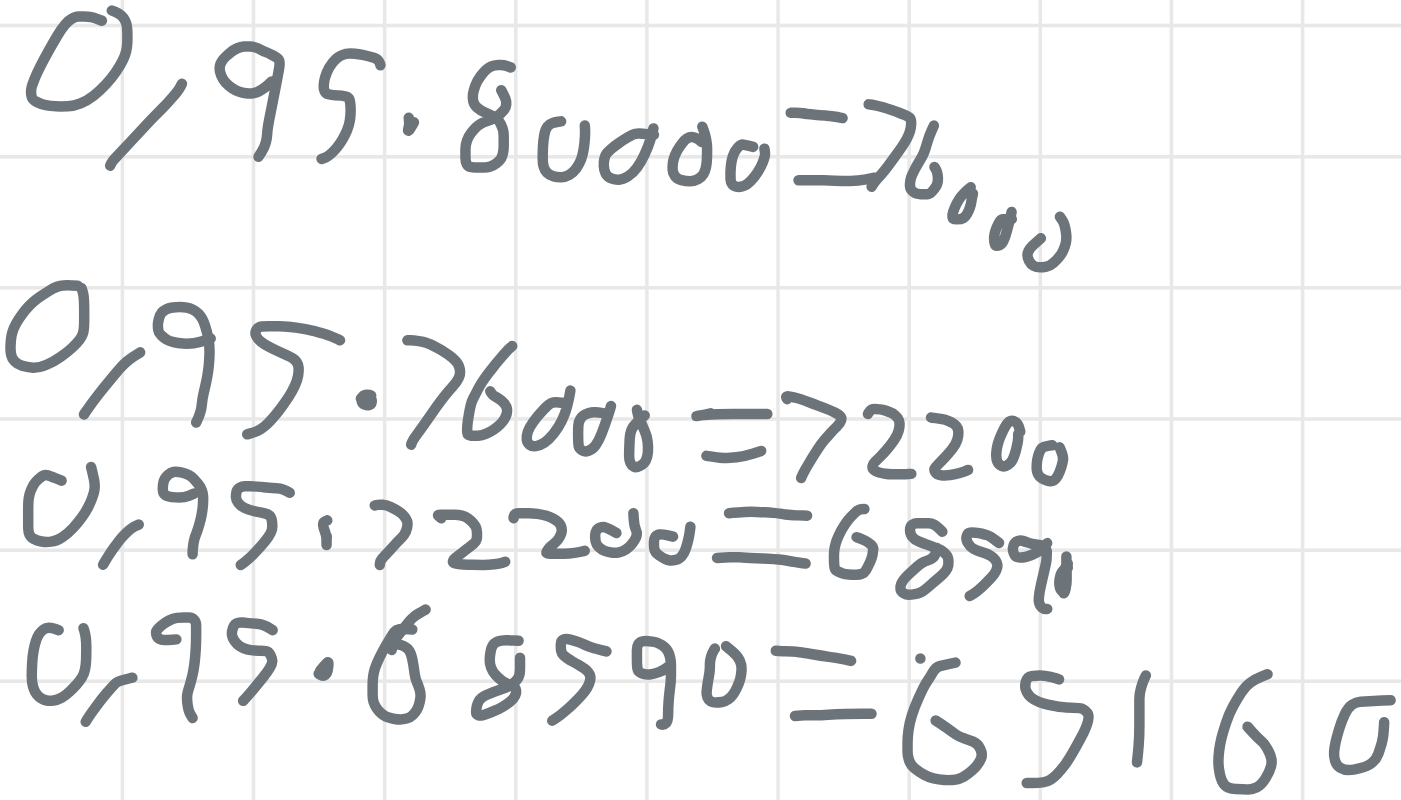 0,95·80000=76000
0,95·76000=72200
0,95·72200=68590
0,95·68590=65160